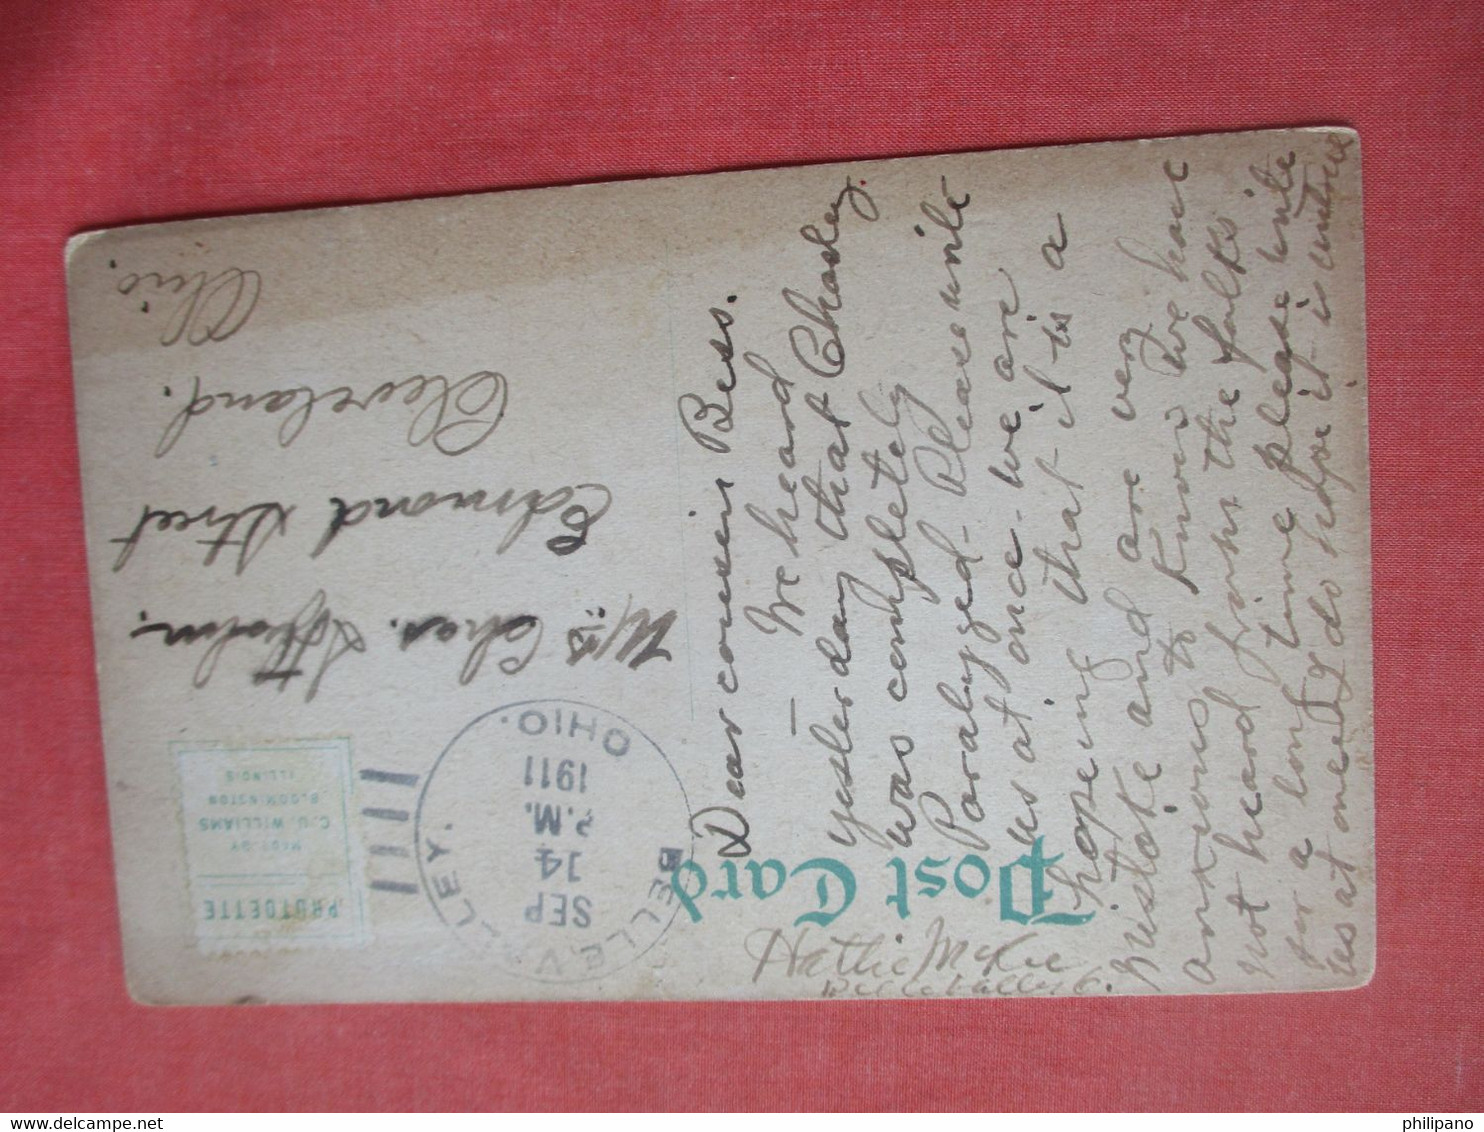 Dear cousin Bess.
We heard
yesterday that Charley
was completely
Paralyzed. Please write
us at once. we are
hopeing that it is a
mistake and are very
anxious to know. we have
not heard from the folks
for a long time please write
us at once I do hope it is untrue
Hattie McKee
Belle Valley O.
Post Card
Mrs Chas.
Edmond Street
Cleveland.
Ohio.
BELLE VALLEY.
SEP
14
P.M.
1911
OHIO.
PROTOETTE
MFG. BY
C.U. WILLIAMS
BLOOMINGTON
ILLINOIS
www.delcampe.net
philipano